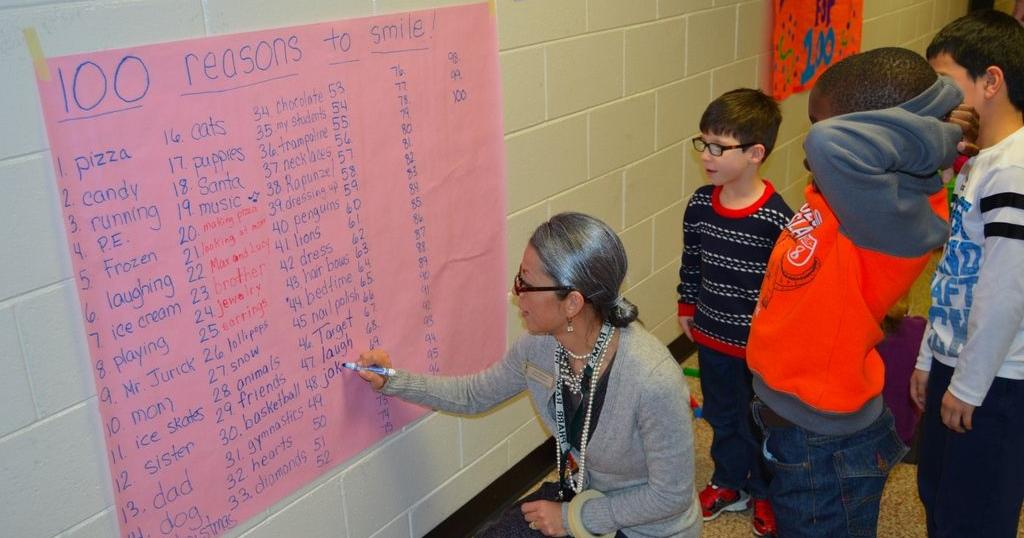 100 reasons to smile!
1. pizza
2. candy
3. running
4. P.E.
5. Frozen
6. laughing
7. ice cream
8. playing
9. Mr. Jurick
10. mom
11. ice skates
12. sister
13. dad
dog
16. cats
17. puppies
18. Santa
19. music
20. making pizza
21. looking at mom
22. Max and Lucy
23. brother
24. jewelry
25. earrings
26. lollipops
27. snow
28. animals
29. friends
30. basketball
31. gymnastics
32. hearts
33. diamonds
34. chocolate
35. my students
36. trampoline
37. necklaces
38. Rapunzel
39. dressing up
40. penguins
41. lions
42. dress
43. hair bows
44. bedtime
45. nail polish
46. Target
47. laugh
48. jok
49.
50
51
52
53
54
55
56
57
58
59
60
61
62
63
64
65
66
67
68
69
76
77
78
79
80
81
82
83
84
85
86
87
88
89
90
91
92
93
94
95
96
98.
99.
100
TOP
100